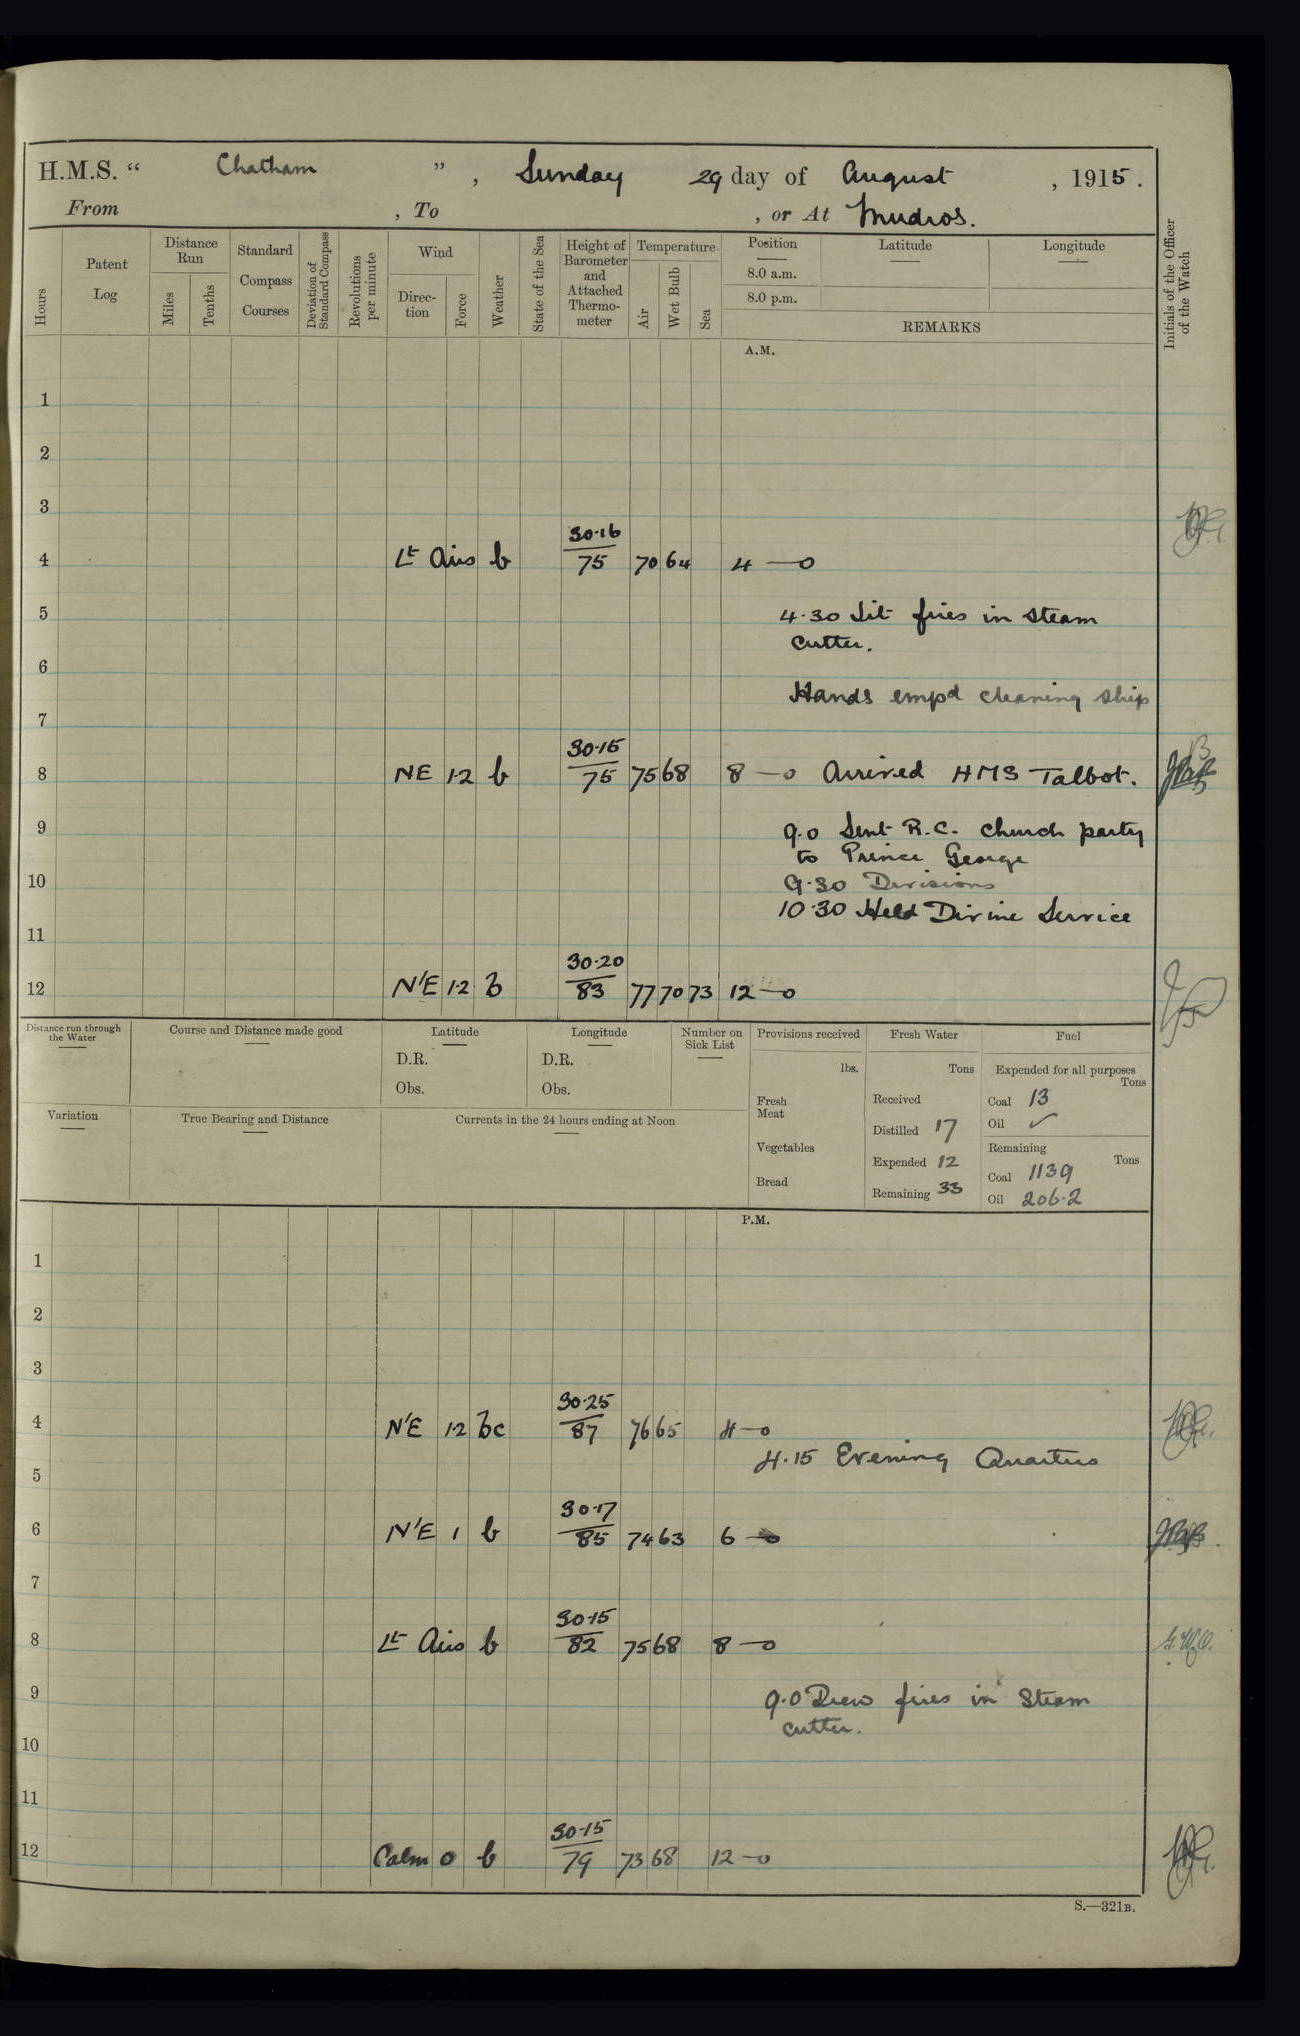 H.M.S. “ Chatham ” , Sunday 29 day of August , 1915 .
From , To , or At Mudros.
Hours
Patent Log
Distance Run
Miles
Tenths
Standard Compass Courses
Deviation of Standard Compass
Revolutions per minute
Wind
Direc-tion
Force
Weather
State of the Sea
Height of Barometer and Attached Thermo-meter
Temperature
Air
Wet Bulb
Sea
Position
8.0 a.m.
8.0 p.m.
Latitude
Longitude
REMARKS
Initials of the Officer of the Watch
A.M.
1
2
3
30·16
4 Lt Airs b 75 70 64 4 —o
5 4·30 Lit fires in steam
cutter.
6
Hands empd cleaning ship
7
30·15
8 NE 1·2 b 75 75 68 8 —o Arrived HMS Talbot.
9 9·0 Sent R.C. Church party
to Prince George
10 9·30 Divisions
10·30 Held Divine Service
11
30·20
12 N'E 1·2 b 83 77 70 73 12 —o
Distance run through the Water
Course and Distance made good
Latitude
D.R.
Obs.
Longitude
D.R.
Obs.
Number on Sick List
Variation
True Bearing and Distance
Currents in the 24 hours ending at Noon
Provisions received
lbs.
Fresh Meat
Vegetables
Bread
Fresh Water
Tons
Received
Distilled 17
Expended 12
Remaining 33
Fuel
Expended for all purposes
Tons
Coal 13
Oil ✓
Remaining
Tons
Coal 1139
Oil 206·2
P.M.
1
2
3
30·25
4 N'E 1·2 bc 87 76 65 4 —o
4·15 Evening Quarters
5
30·17
6 N'E 1 b 85 74 63 6 —o
7
30·15
8 Lt Airs b 82 75 68 8 —o G.W.O.
9 9·0 Drew fires in Steam
cutter.
10
11
30·15
12 Calm 0 b 79 73 68 12 —o
S.—321B.